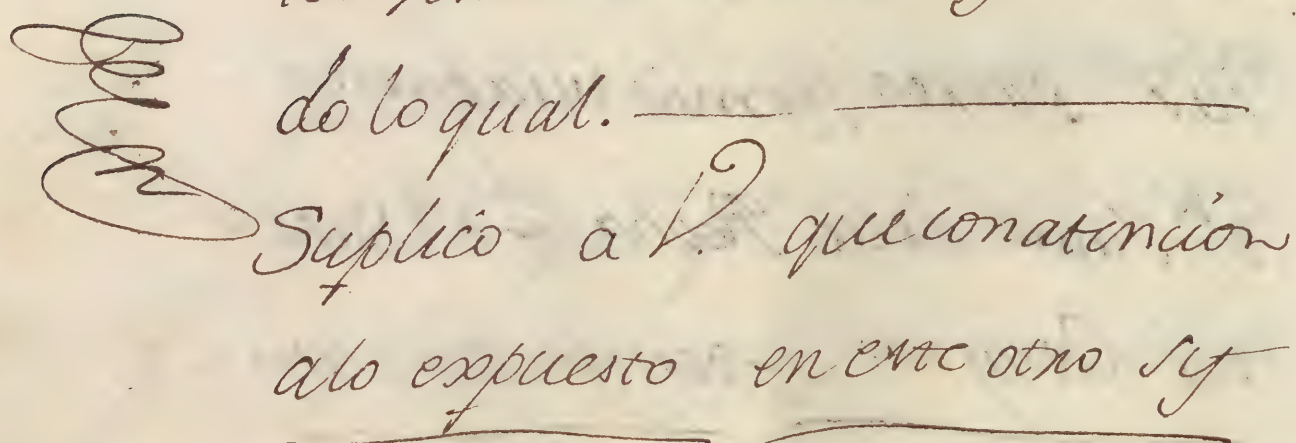 do lo qual.
Suplico a V. que con atencion
a lo expuesto en este otro sy